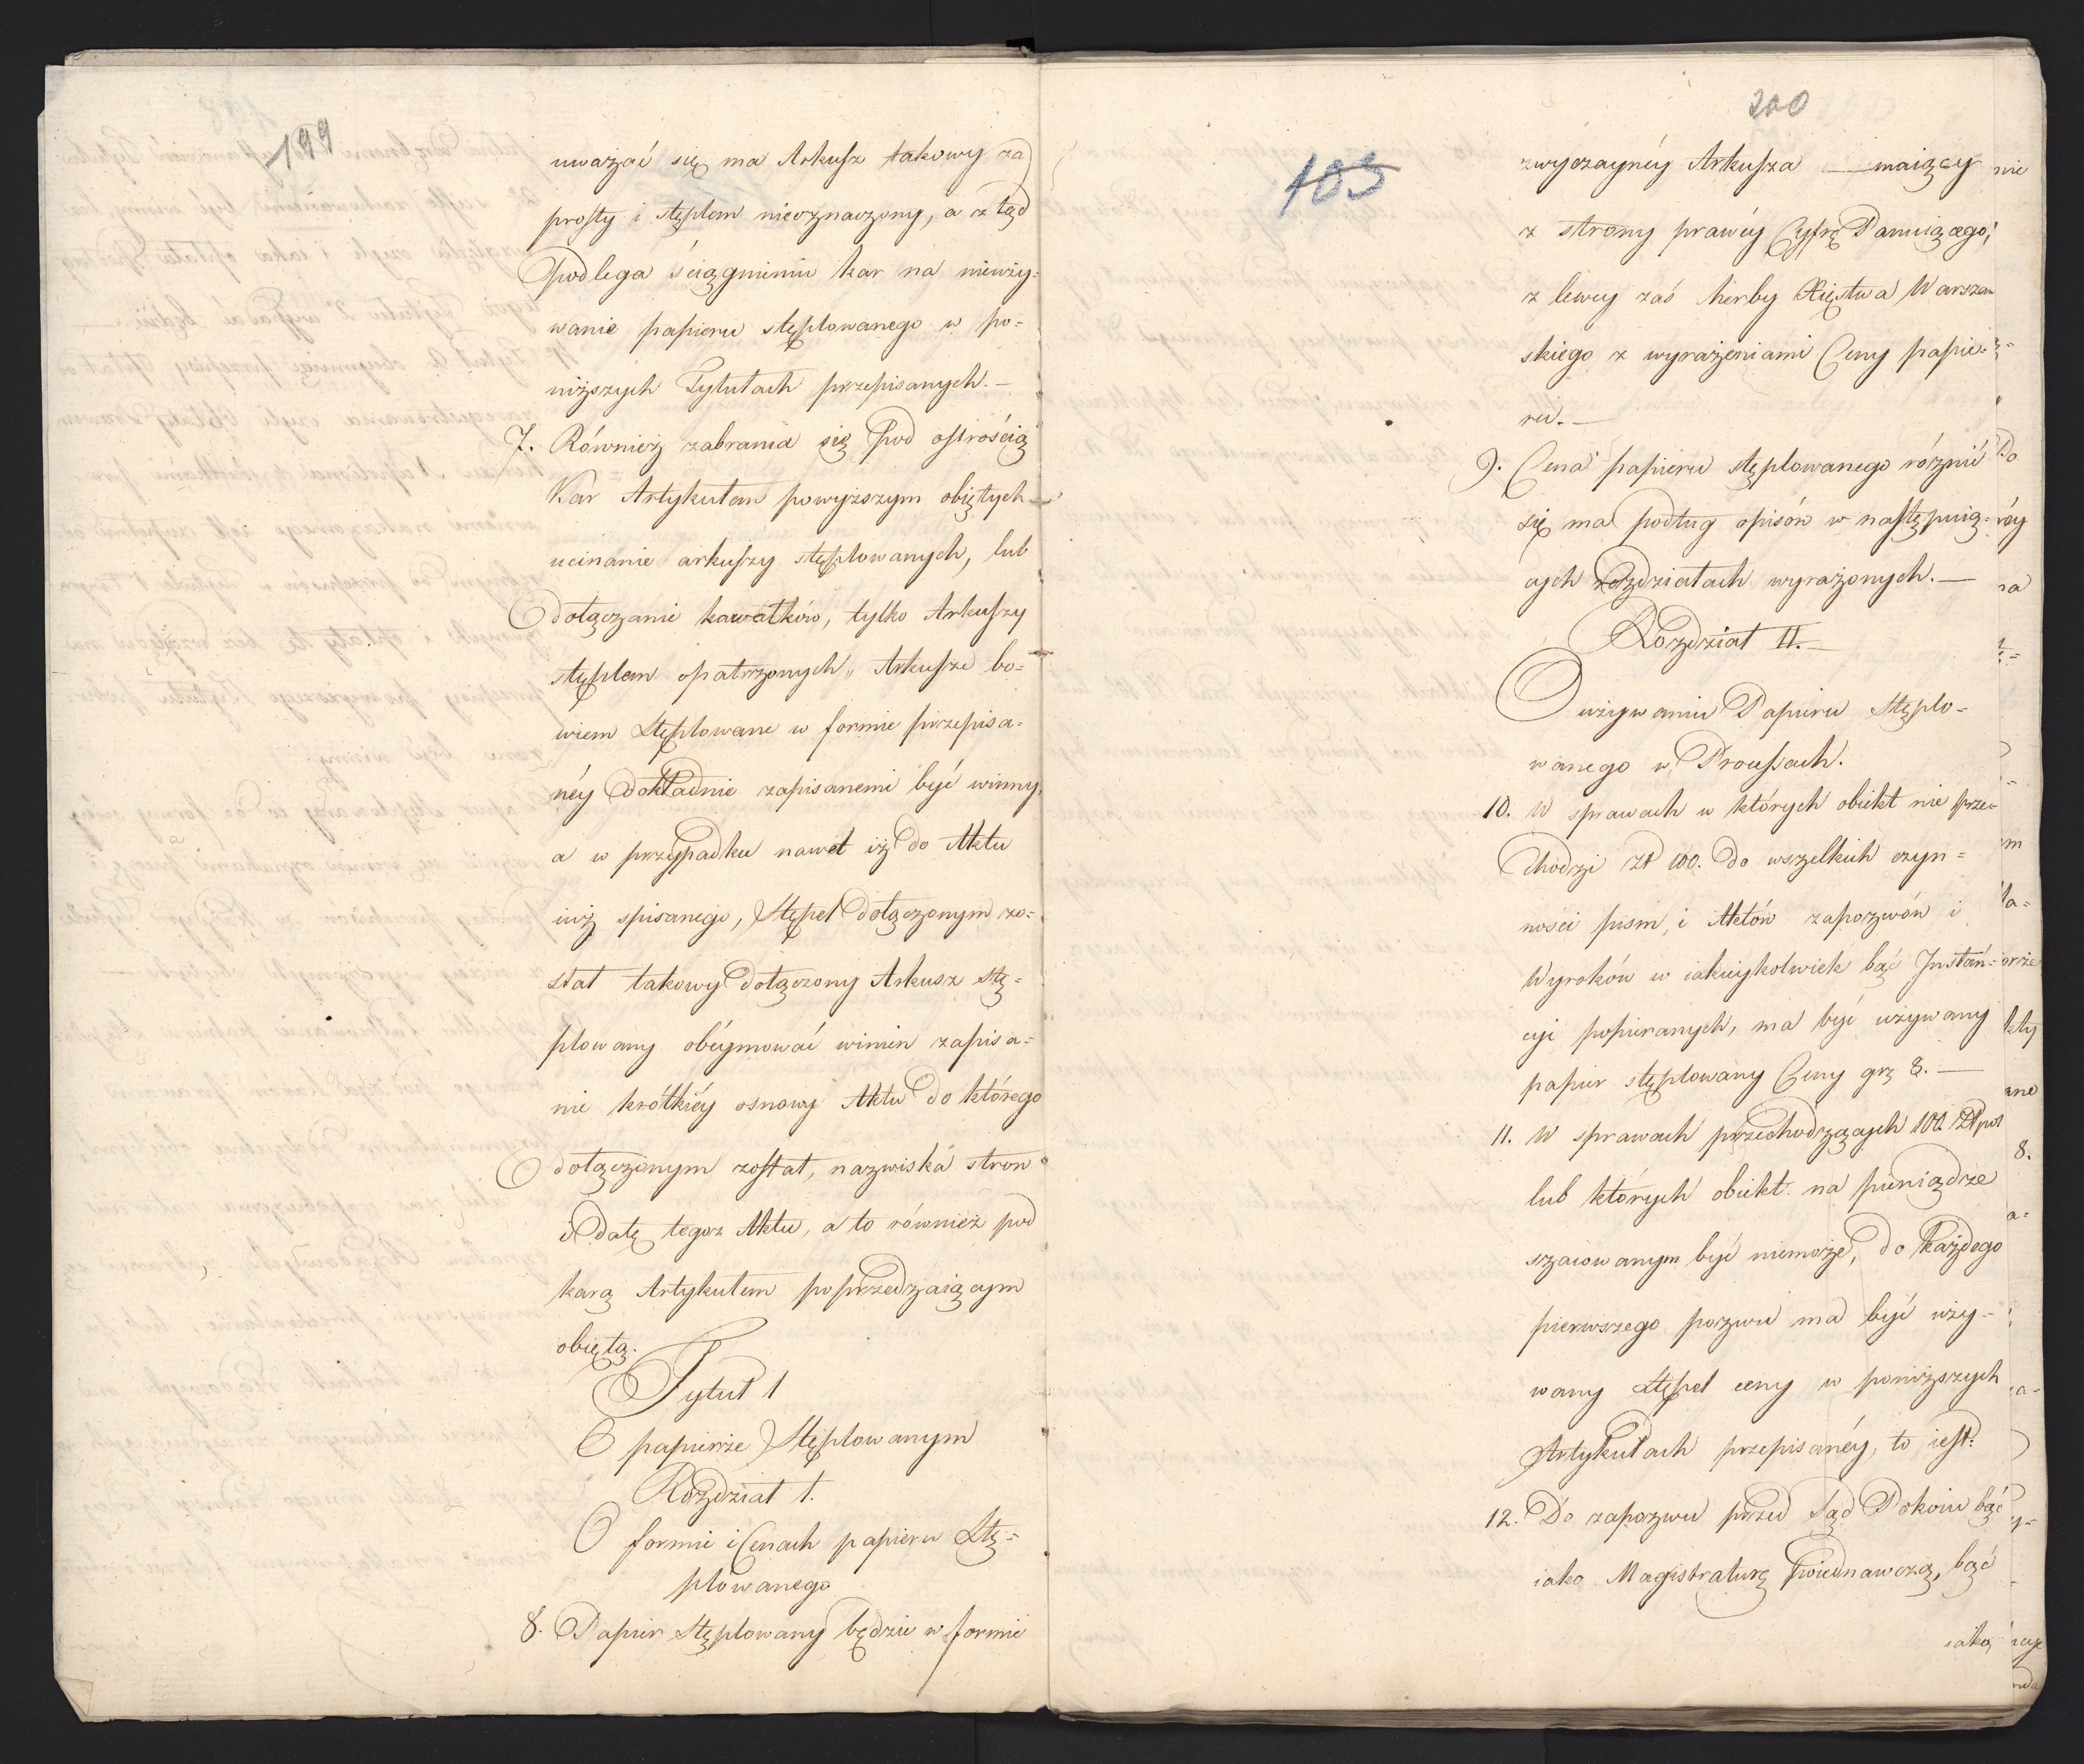 199
uważać się ma Arkusz takowy za
prosty i stęplem nieoznaczony, a ztąd
podlega ściągnieniu kar na nieuży-
wanie papieru stęplowanego w po-
niższych Tytułach przepisanych. —
7. Również zabrania się pod ostrością
Kar Artykułem powyższym obiętych
ucinanie arkuszy stęplowanych, lub
dołączanie kawałków, tylko Arkuszy
stęplem opatrzonych, Arkusze bo-
wiem stęplowane w formie przepisa-
néy dokładnie zapisanemi być winny,
a w przypadku nawet iż do Aktu
iuż spisanego, Stępel dołączonym zo-
stał takowy dołączony Arkusz stę-
plowany obéymować winien zapisa-
nie krótkiéy osnowy Aktu do którego
dołączonym został, nazwiska stron
i datę tegoz Aktu, a to również pod
karą Artykułem poprzedzaiącym
obiętą.
Tytuł 1
O papierze Stęplowanym
Rozdział 1.
O formie i Cenach papieru Stę-
plowanego
8. Papier Stęplowany będzie w formie
200
103
zwyczaynéy Arkusza — maiący
z strony prawéy Cyfrę Panuiącego,
z lewey zaś herby Xięstwa Warszaw
skiego z wyrażeniami Ceny papie-
ru. —
9. Cena papieru stęplowanego różnić
się ma podług opisów w następuią-
cych rozdziałach wyrażonych. —
Rozdział II. —
O używaniu Papieru Stęplo-
wanego w Proussach.
10. W sprawach w których obiekt nie prze-
chodzi zł 100. do wszelkich czyn-
ności pism, i Aktów zapozwów i
Wyroków w iakieykolwiek bąć Instan-
cyi popieranych, ma być używany
papier stęplowany Ceny gr 8. —
11. W sprawach przechodzących 100. Zł pol
lub których obiekt na pieniądze
szacowanym być niemoże, do każdego
pierwszego pozwu ma być uży-
wany stępel ceny w poniższych
Artykułach przepisanéy, to iest:
12. Do zapozwu przed Sąd Pokoiu bąć
iako Magistraturę poiednawczą, bąć
iako